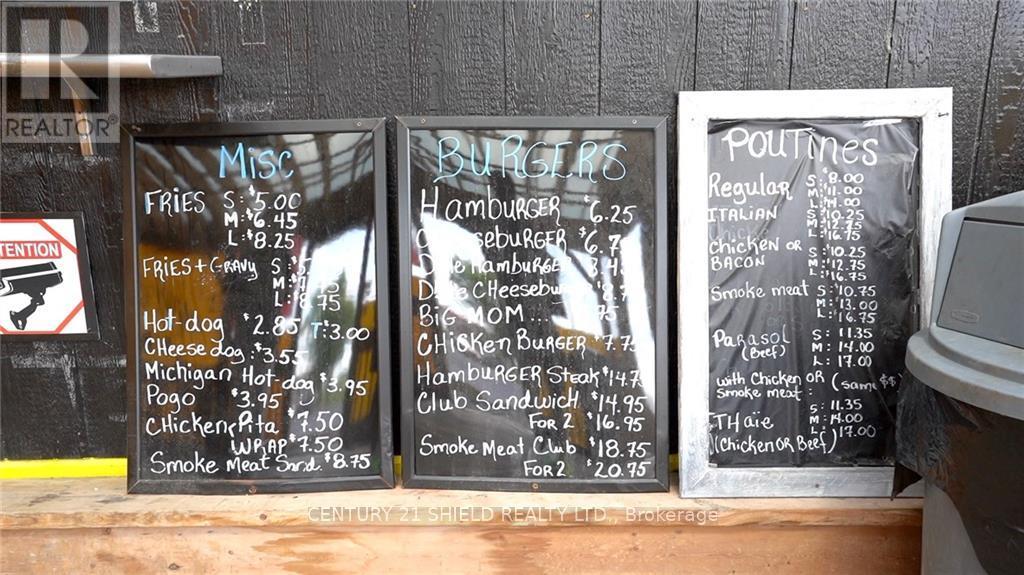 REALTOR®
ATTENTION
Misc
FRIES S: $5.00
M: $6.45
L: $8.25
FRIES + GRAVY S: $5
M: $7
L: $8.75
Hot-dog $2.85 T: 3.00
CHeese dog: $3.55
Michigan Hot-dog $3.95
Pogo $3.95
CHicken Pita $7.50
WRAP $7.50
Smoke Meat Sand. $8.75
BURGERS
HamBURGER $6.25
CheeseBURGER $6.7
Dble HamBURGER 8.45
Dble CHeeseburger $8.7
BiG MOM ... 75
CHicken BURGER $7.75
HamBURGER Steak $14.75
Club Sandwich $14.95
FOR 2 $16.95
Smoke Meat Club $18.75
FOR 2 $20.75
POUTines
Regular S: $8.00
M: 11.00
L: 14.00
ITALIAN S: 10.25
M: 12.75
L: 16.75
CHicken OR S: 10.25
BACON M: 12.75
L: 16.75
Smoke meat S: $10.75
M: 13.00
L: 16.75
PaRasol S: 11.35
(Beef) M: 14.00
L: 17.00
with Chicken OR (same $$)
smoke meat:
S: 11.35
THaïe M: 14.00
(Chicken OR Beef) L: 17.00
CENTURY 21 SHIELD REALTY LTD., Brokerage